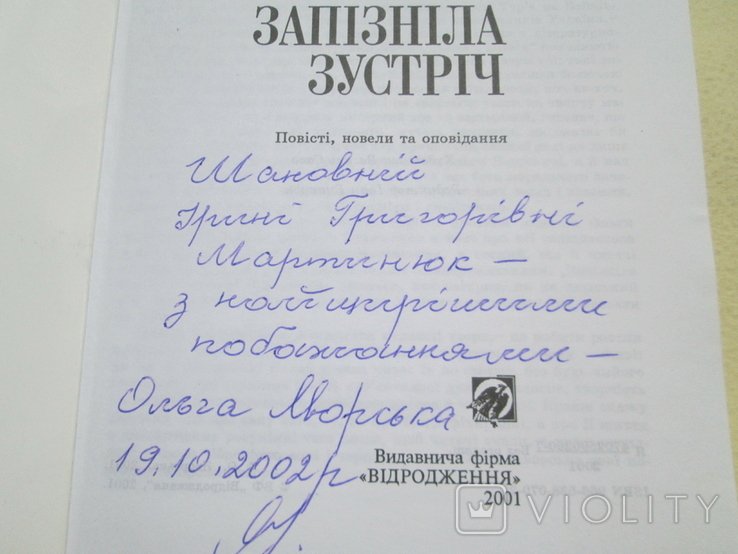 ЗАПІЗНІЛА
ЗУСТРІЧ
Повісті, новели та оповідання
Шановній
Ірині Григорівні
Мартинюк –
з найщирішими
побажаннями –
Ольга Яворська
19.10.2002р
Видавнича фірма
«ВІДРОДЖЕННЯ»
2001
VIOLITY